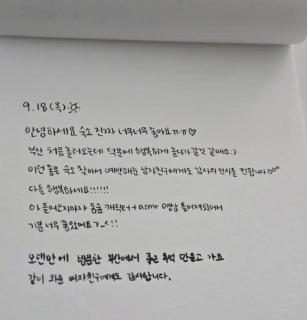 9.18(목)
안녕하세요 숙소 진짜 너무너무 좋아요ㅠㅠ♡
부산 처음 놀러오는데 덕분에 행복하게 놀다가 갈것 같애요:)
이런 좋은 숙소 찾아서 예약해준 남자친구에게도 감사의 인사를 전합니다
다들 행복하세요!!!!!!
아 들어오자마자 동숲 캐릭터 + asmr 영상 틀어져있어서
기분 너무 좋았어요
오랜만에 방문한 부산에서 좋은 추억 만들고 가요
같이 와준 여자친구에게도 감사합니다.